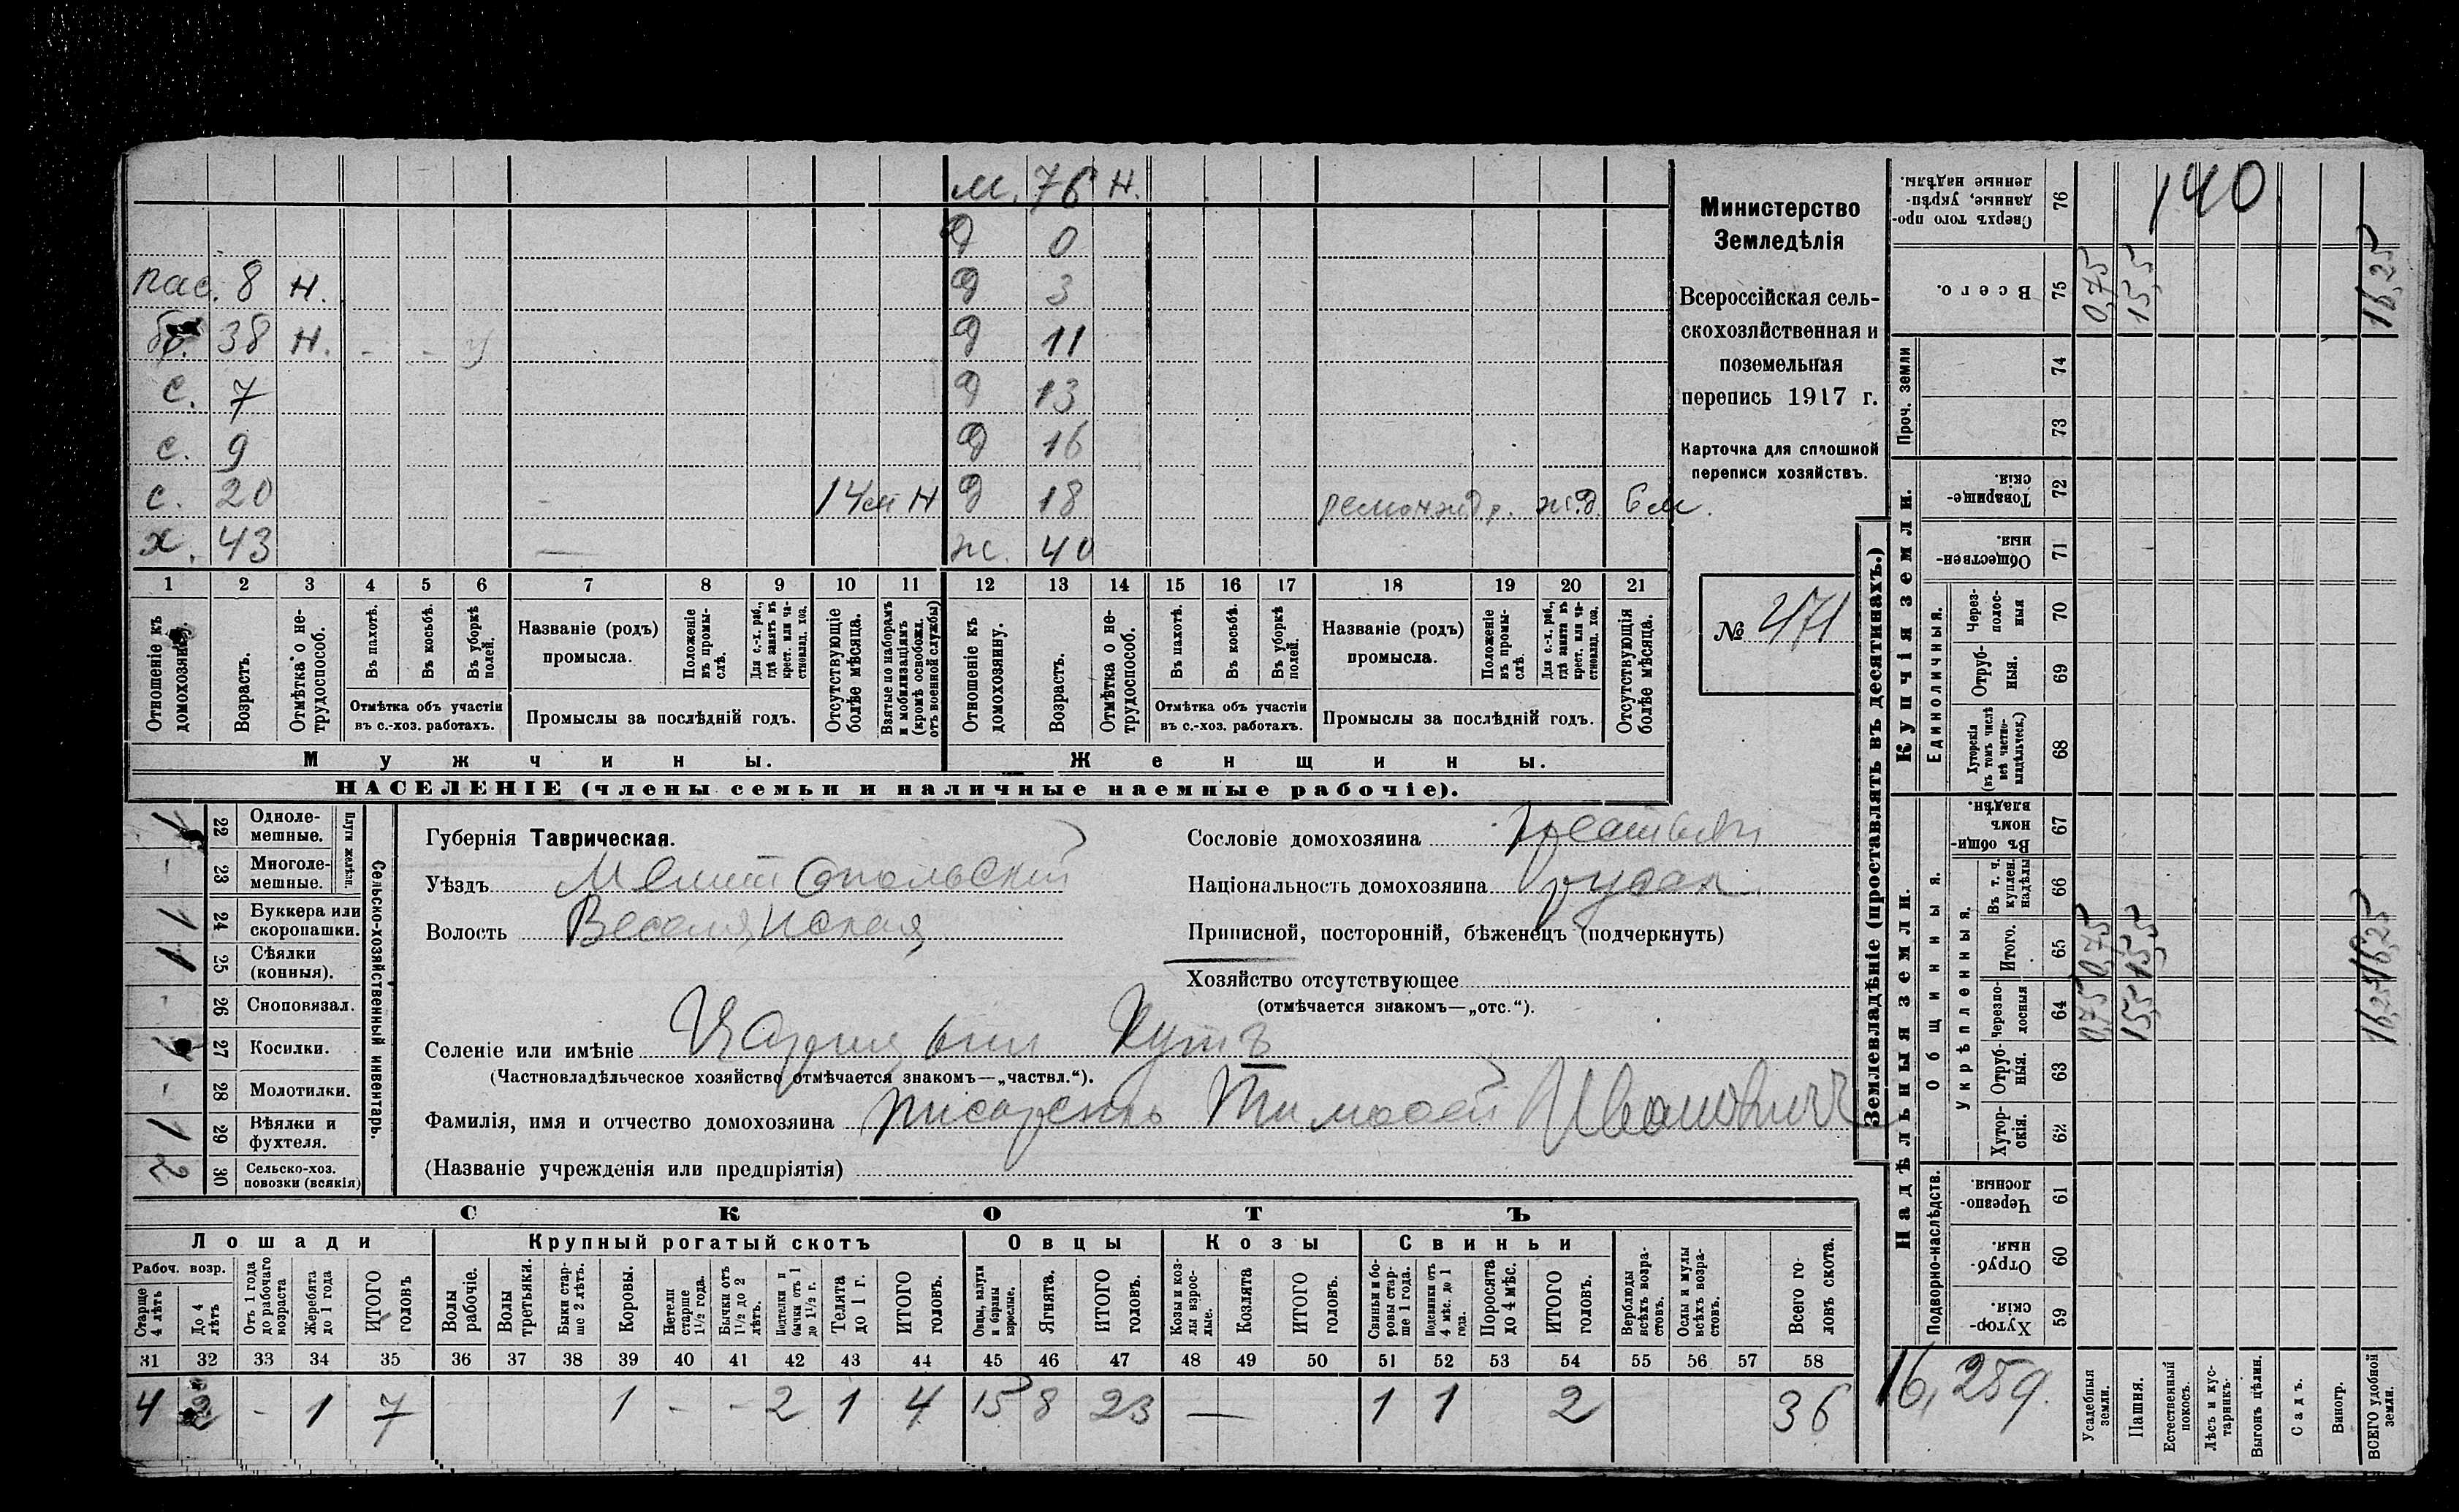 м. 76 н.
д 0
пас. 8 н. д 3
бр. 38 н. - - у д 11
с. 7 д 13
с. 9 д 16
с. 20 - 14 м н д 18 ж.д. 6 м.
х. 43 — ж. 40
1 2 3 4 5 6 7 8 9 10 11 12 13 14 15 16 17 18 19 20 21
Отношеніе къ домохозяину.
Возрастъ.
Отмѣтка о не-
трудоспособ.
Въ пахотѣ.
Въ косьбѣ.
Въ уборкѣ полей.
Отмѣтка объ участіи
въ с.-хоз. работахъ.
Названіе (родъ)
промысла.
Положеніе
въ промы-
слѣ.
Для с.-х. раб.,
гдѣ занятъ въ
крест. или ча-
стновлад. хоз.
Промыслы за послѣдній годъ.
Отсутствующіе
болѣе мѣсяца.
Взятые по наборамъ
и мобилизаціямъ
(кромѣ освобожд.
отъ военной службы)
Отношеніе къ
домохозяину.
Возрастъ.
Отмѣтка о не-
трудоспособ.
Въ пахотѣ.
Въ косьбѣ.
Въ уборкѣ
полей.
Отмѣтка объ участіи
въ с.-хоз. работахъ.
Названіе (родъ)
промысла.
Положеніе
въ промы-
слѣ.
Для с.-х. раб.,
гдѣ занята въ
крест. или ча-
стновлад. хоз.
Промыслы за послѣдній годъ.
Отсутствующія
болѣе мѣсяца.
Мужчины.
Женщины.
НАСЕЛЕНІЕ (члены семьи и наличные наемные рабочіе).
Министерство
Земледѣлія
Всероссійская сель-
скохозяйственная и
поземельная
перепись 1917 г.
Карточка для сплошной
переписи хозяйствъ.
№ 471
1 22 Одноле-
мешные.
- 23 Многоле-
мешные.
Плуги желѣзн.
1 24 Буккера или
скоропашки.
1 25 Сѣялки
(конныя).
- 26 Сноповязал.
1 27 Косилки.
- 28 Молотилки.
1 29 Вѣялки и
фухтеля.
2 30 Сельско-хоз.
повозки (всякія)
Сельско-хозяйственный инвентарь.
Губернія Таврическая.
Уѣздъ Мелитопольскій
Волость Веселянская
Сословіе домохозяина крестьян
Національность домохозяина русск
Приписной, посторонній, бѣженецъ (подчеркнуть)
Хозяйство отсутствующее
(отмѣчается знакомъ—„отс.“).
Селеніе или имѣніе Кутъ
(Частновладѣльческое хозяйство отмѣчается знакомъ—„частвл.“).
Фамилія, имя и отчество домохозяина Писаренко Тимофей Иванович
(Названіе учрежденія или предпріятія)
СКОТЪ
Лошади
Крупный рогатый скотъ
Овцы
Козы
Свиньи
Рабоч. возр.
Старше
4 лѣтъ
До 4
лѣтъ
Отъ 1 года
до рабочаго
возраста
Жеребята
до 1 года
ИТОГО
головъ
Волы
рабочіе.
Волы
третьяки.
Быки стар-
ше 2 лѣтъ.
Коровы.
Нетели
старше
1½ года.
Бычки отъ
1½ до 2
лѣтъ.
Подтелки и
бычки отъ 1
до 1½ г.
Телята
до 1 г.
ИТОГО
головъ.
Овцы, валухи
и бараны
взрослые.
Ягнята.
ИТОГО
головъ.
Козы и коз-
лы взрос-
лые.
Козлята
ИТОГО
головъ.
Свиньи и бо-
ровы стар-
ше 1 года.
Подсвинки отъ
4 мѣс. до 1
года.
Поросята
до 4 мѣс.
ИТОГО
головъ.
Верблюды
всѣхъ возра-
стовъ.
Ослы и мулы
всѣхъ возра-
стовъ.
Всего го-
ловъ скота.
31 32 33 34 35 36 37 38 39 40 41 42 43 44 45 46 47 48 49 50 51 52 53 54 55 56 57 58
4 2 - 1 7 1 - - 2 1 4 15 8 23 — 1 1 2 36
Землевладѣніе (проставлять въ десятинахъ.)
Надѣльныя земли.
Купчія земли.
Проч. земли
Подворно-наслѣдств.
Общинныя.
Укрѣпленныя.
Единоличныя.
Сверхъ того про-
данные, укрѣп-
ленные надѣлы.
76
140
Всего.
75
0,75
15,5
16,25
74
73
Товарище-
скія.
72
Обществен-
ныя.
71
Через-
полос-
ныя
70
Отруб-
ныя.
69
Хуторскія
(въ томъ числѣ
всѣ частно-
владѣльческ.)
68
Въ общин-
номъ
владѣн.
67
Въ т. ч.
куплен.
надѣлы
66
Итого.
65
0,75
15,5
16,25
Черезпо-
лосныя
64
0,75
15,5
16,25
Отруб-
ныя.
63
Хутор-
скія.
62
Черезпо-
лосныя.
61
Отруб-
ныя.
60
Хутор-
скія
59
16,25 д.
Усадебныя
земли.
Пашня.
Естественный
покосъ.
Лѣсъ и кус-
тарникъ.
Выгонъ цѣлин.
Садъ.
Виногр.
ВСЕГО удобной
земли.